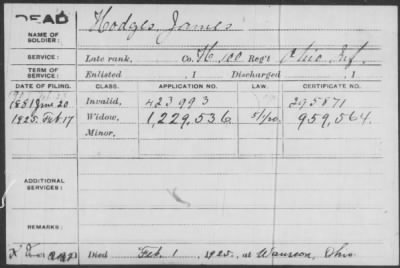 DEAD
NAME OF SOLDIER: Hodges, James
SERVICE: Late rank, Co. H. 100 Reg't Ohio Inf.
TERM OF SERVICE: Enlisted , 1 Discharged , 1
DATE OF FILING. CLASS. APPLICATION NO. LAW. CERTIFICATE NO.
1881 June 20 Invalid, 423993 295871
1925. Feb. 17 Widow, 1,229,536 5/1/20. 959,564.
Minor,
ADDITIONAL SERVICES:
REMARKS:
Died Feb. 1 , 1925, at Wauseon, Ohio.